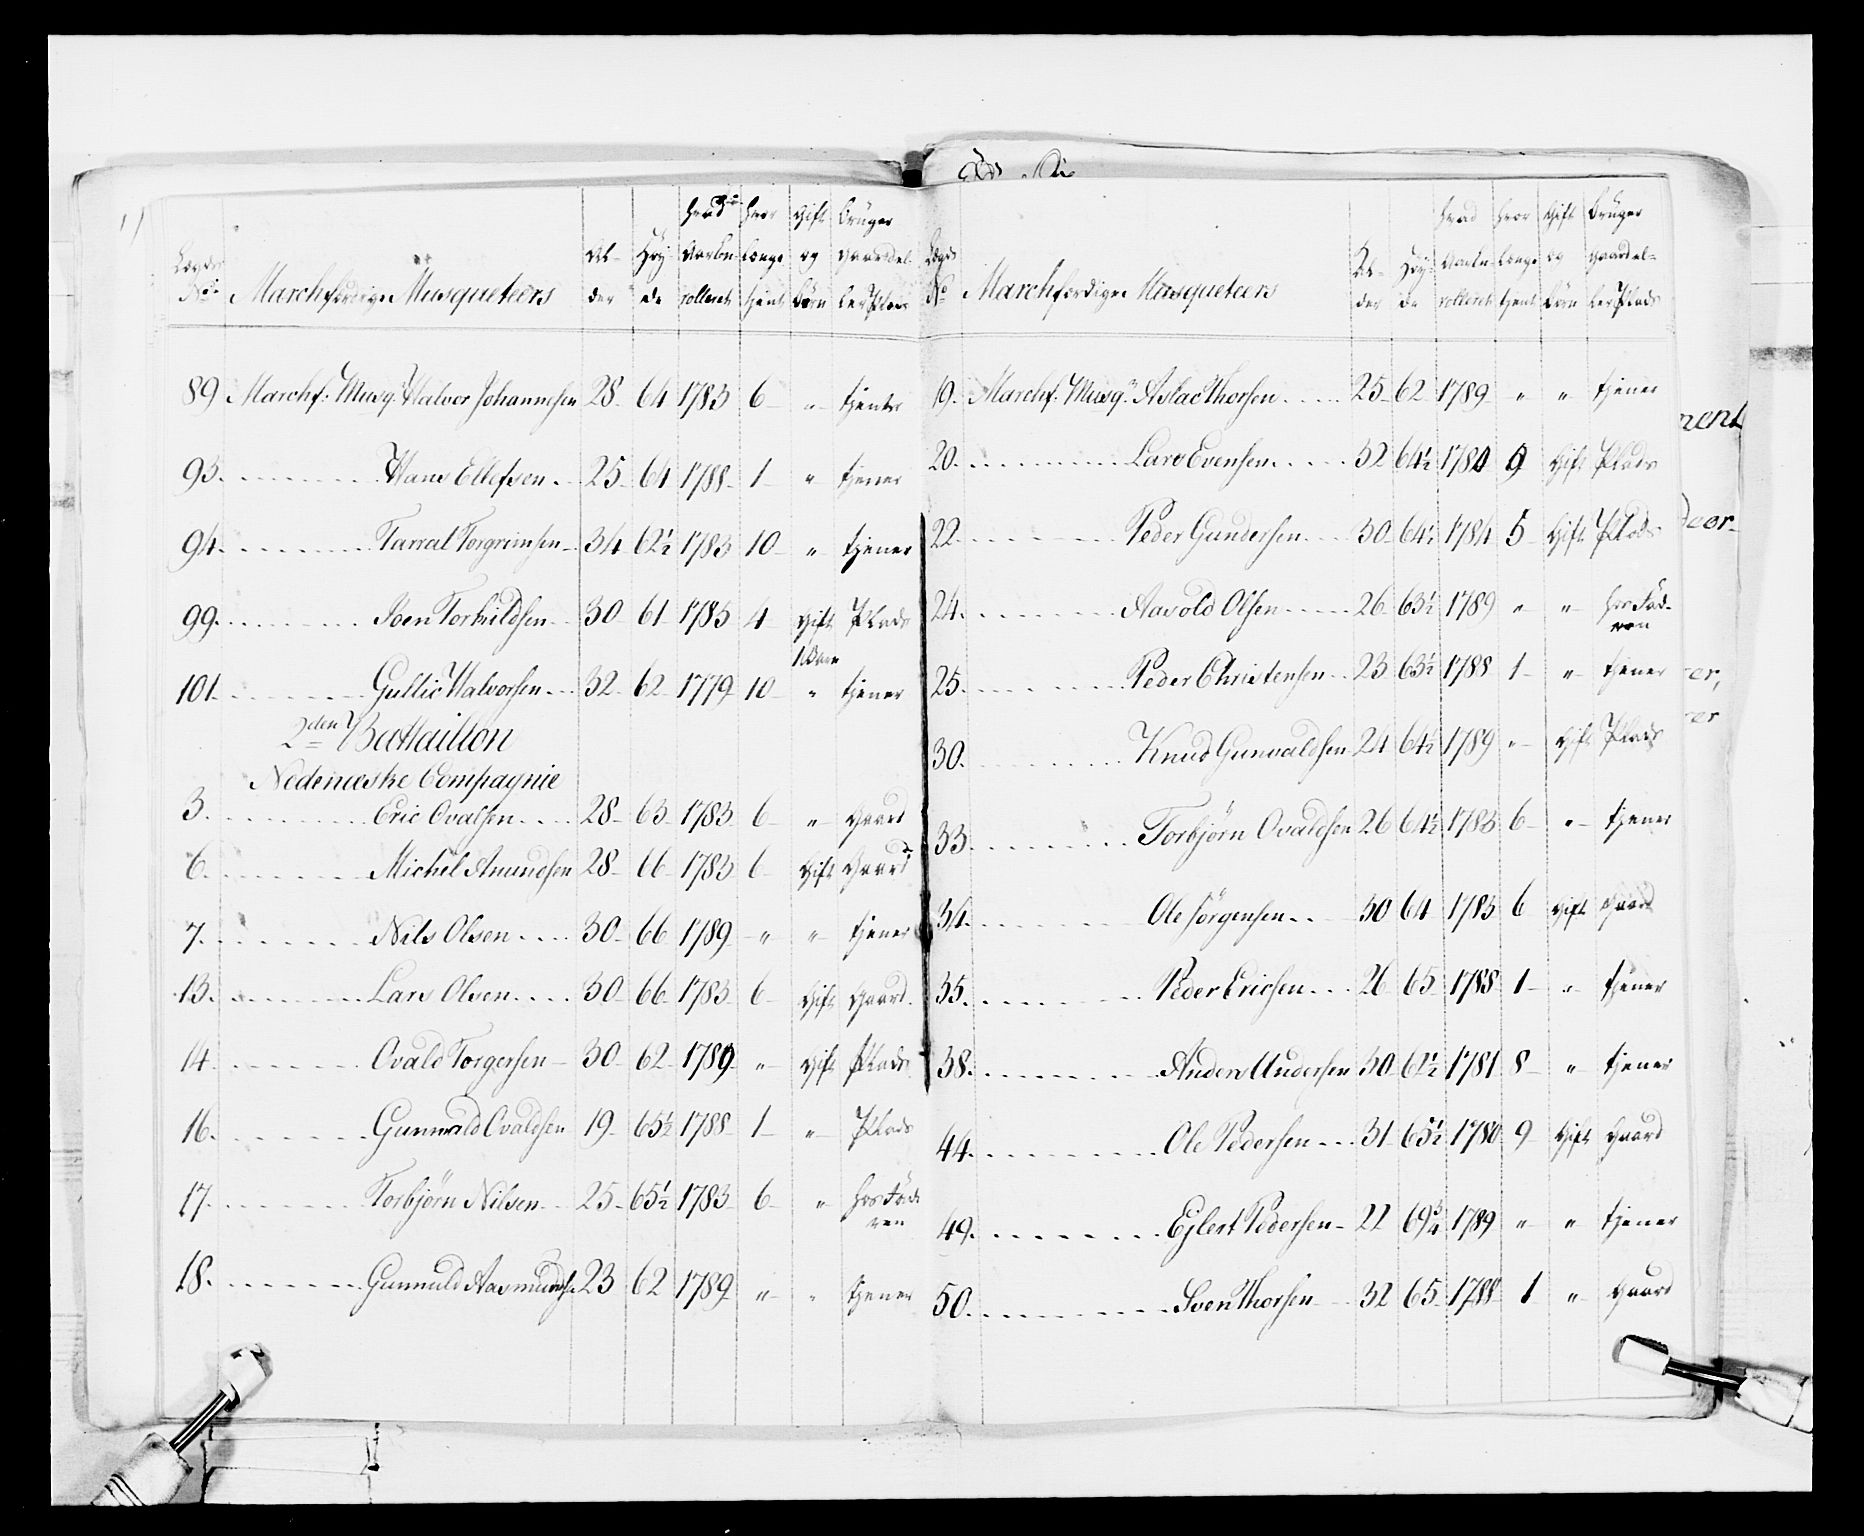 Lægds No. Marchfærdige Musqueteers Al-der Høy-de hvad Aar bn rolleret hvor længe tjent Gift og børn bruger Gaard el-ler Plads
89 Marchf: Musq: Halvor Johannesen 28 64 1783 6 " tjener
93. Hans Ellefsen 25 64 1788 1 " tjener
94. Tarral Torgrimsen 34 62½ 1783 10 " tjener
99. Joen Torkildsen 30 61 1785 4 Gift 1 Barn Plads
101. Gullic Halvorsen 32 62 1779 10 " tjener
2den Battaillon
Nedenæske Compagnie
3. Eric Ovalsen 28 63 1783 6 " Gaard
6. Michel Amundsen 28 66 1783 6 Gift Gaard
7. Nils Olsen 30 66 1789 " " tjener
13. Lars Olsen 30 66 1783 6 Gift Gaard
14. Ovald Torgersen 30 62 1789 " Gift Plads
16. Gunnvald Ovaldsen 19 65½ 1788 1 " Plads
17. Torbjørn Nilsen 25 65½ 1783 6 " hos Fad-ren
18. Gunnuld Aasmunds. 23 62 1789 " " tjener
Lægds No Marchfærdige Musqueteers Al-der Høy-de hvad Aar bn rolleret hvor længe tjent Gift og børn bruger Gaard el-ler Plads
19. Marchf: Musq: Aslac Thorsen 25 62 1789 " " tjener
20. Lars Evensen 32 64½ 1780 9 Gift Plads
22. Peder Gundersen 30 64½ 1784 5 Gift Plads
24. Aavold Olsen 26 63½ 1789 " " hos Fad-ren
25. Peder Christensen 23 63½ 1788 1 " tjener
30. Knud Gunvaldsen 24 64½ 1789 " Gift Plads
33. Torbjørn Ovaldsen 26 64½ 1783 6 " tjener
34. Ole Jørgensen 30 64 1783 6 Gift Gaard
35. Peder Ericsen 26 65 1788 1 " tjener
38. Anders Andersen 30 62½ 1781 8 " tjener
44. Ole Pedersen 31 65½ 1780 9 Gift Gaard
49. Ejlert Pedersen 22 69¾ 1789 " " tjener
50. Sven Thorsen 32 65 1788 1 " Gaard